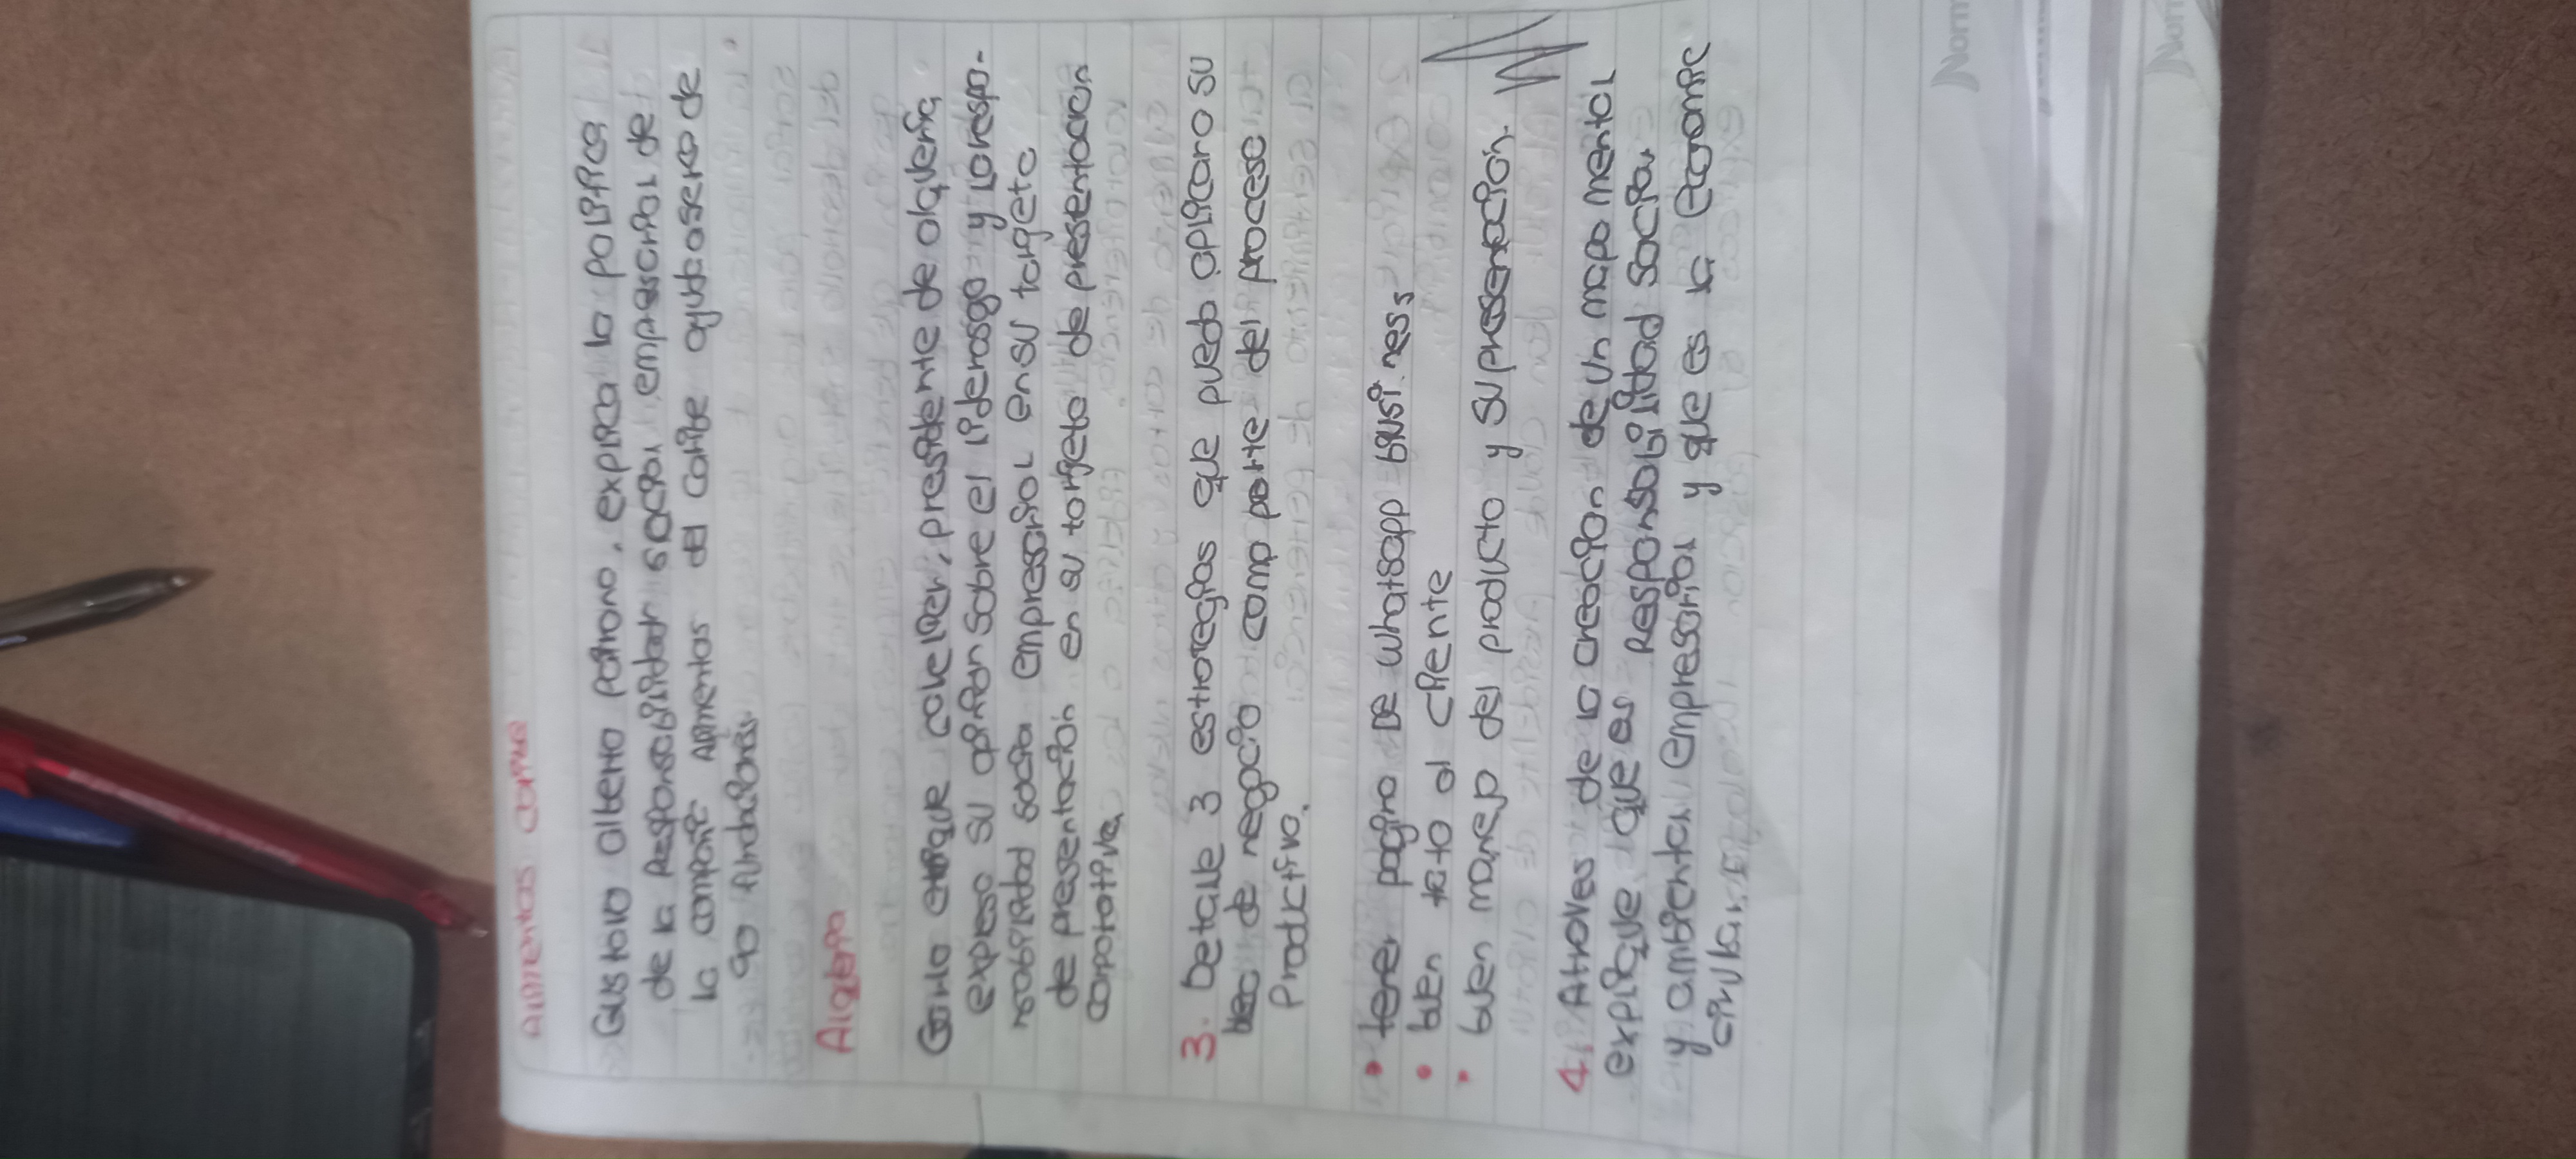 Alimentos carne
Gustavo alberto patrono, explica la politica
de la Responsabilidad social empresarial de
la compañi Alimentos del caribe ayuda a seres de
go fundaciones.
Algeria
Camilo enrique colellier, presidente de olgveria
expreso su opinion sobre el liderasgo y la respo-
nsabilidad social empresarial en su targeta
de presentación en su targeta de presentacion
corporativa
3. Detalle 3 estrategias que puedo aplicar a su
de negocio como parte del proceso
Productivo.
• tener pagina De whatsapp business
• buen trato al cliente
• buen manejo del producto y su presención.
4. Atraves de la creacion de un mapa mental
explique que es Responsabilidad social
y ambiental empresarial y que es la economic
cirular.
Norm
Norm